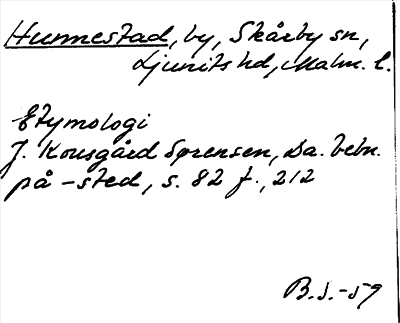 Hunnestad, by, Skårby sn,
Ljunits hd, Malm. l.
Etymologi
J. Kousgård Sørensen, Da. bebn.
på -sted, s. 82 f., 212
B.S.-59